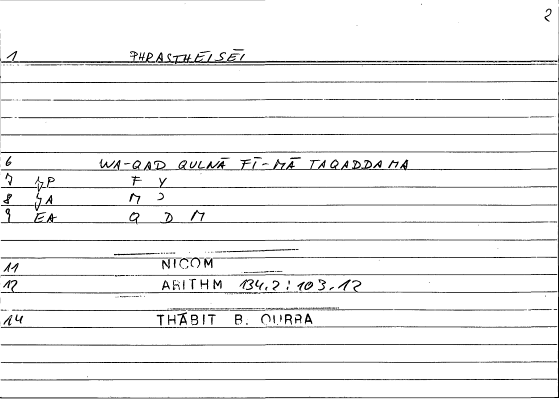 2
1 PHRASTHEISĒI
6 WA-QAD QULNĀ FĪ-MĀ TAQADDAMA
7 P F Y
8 A M
9 EA Q D M
11 NICOM
12 ARITHM 134.2 : 103.12
14 THĀBIT B. QURRA